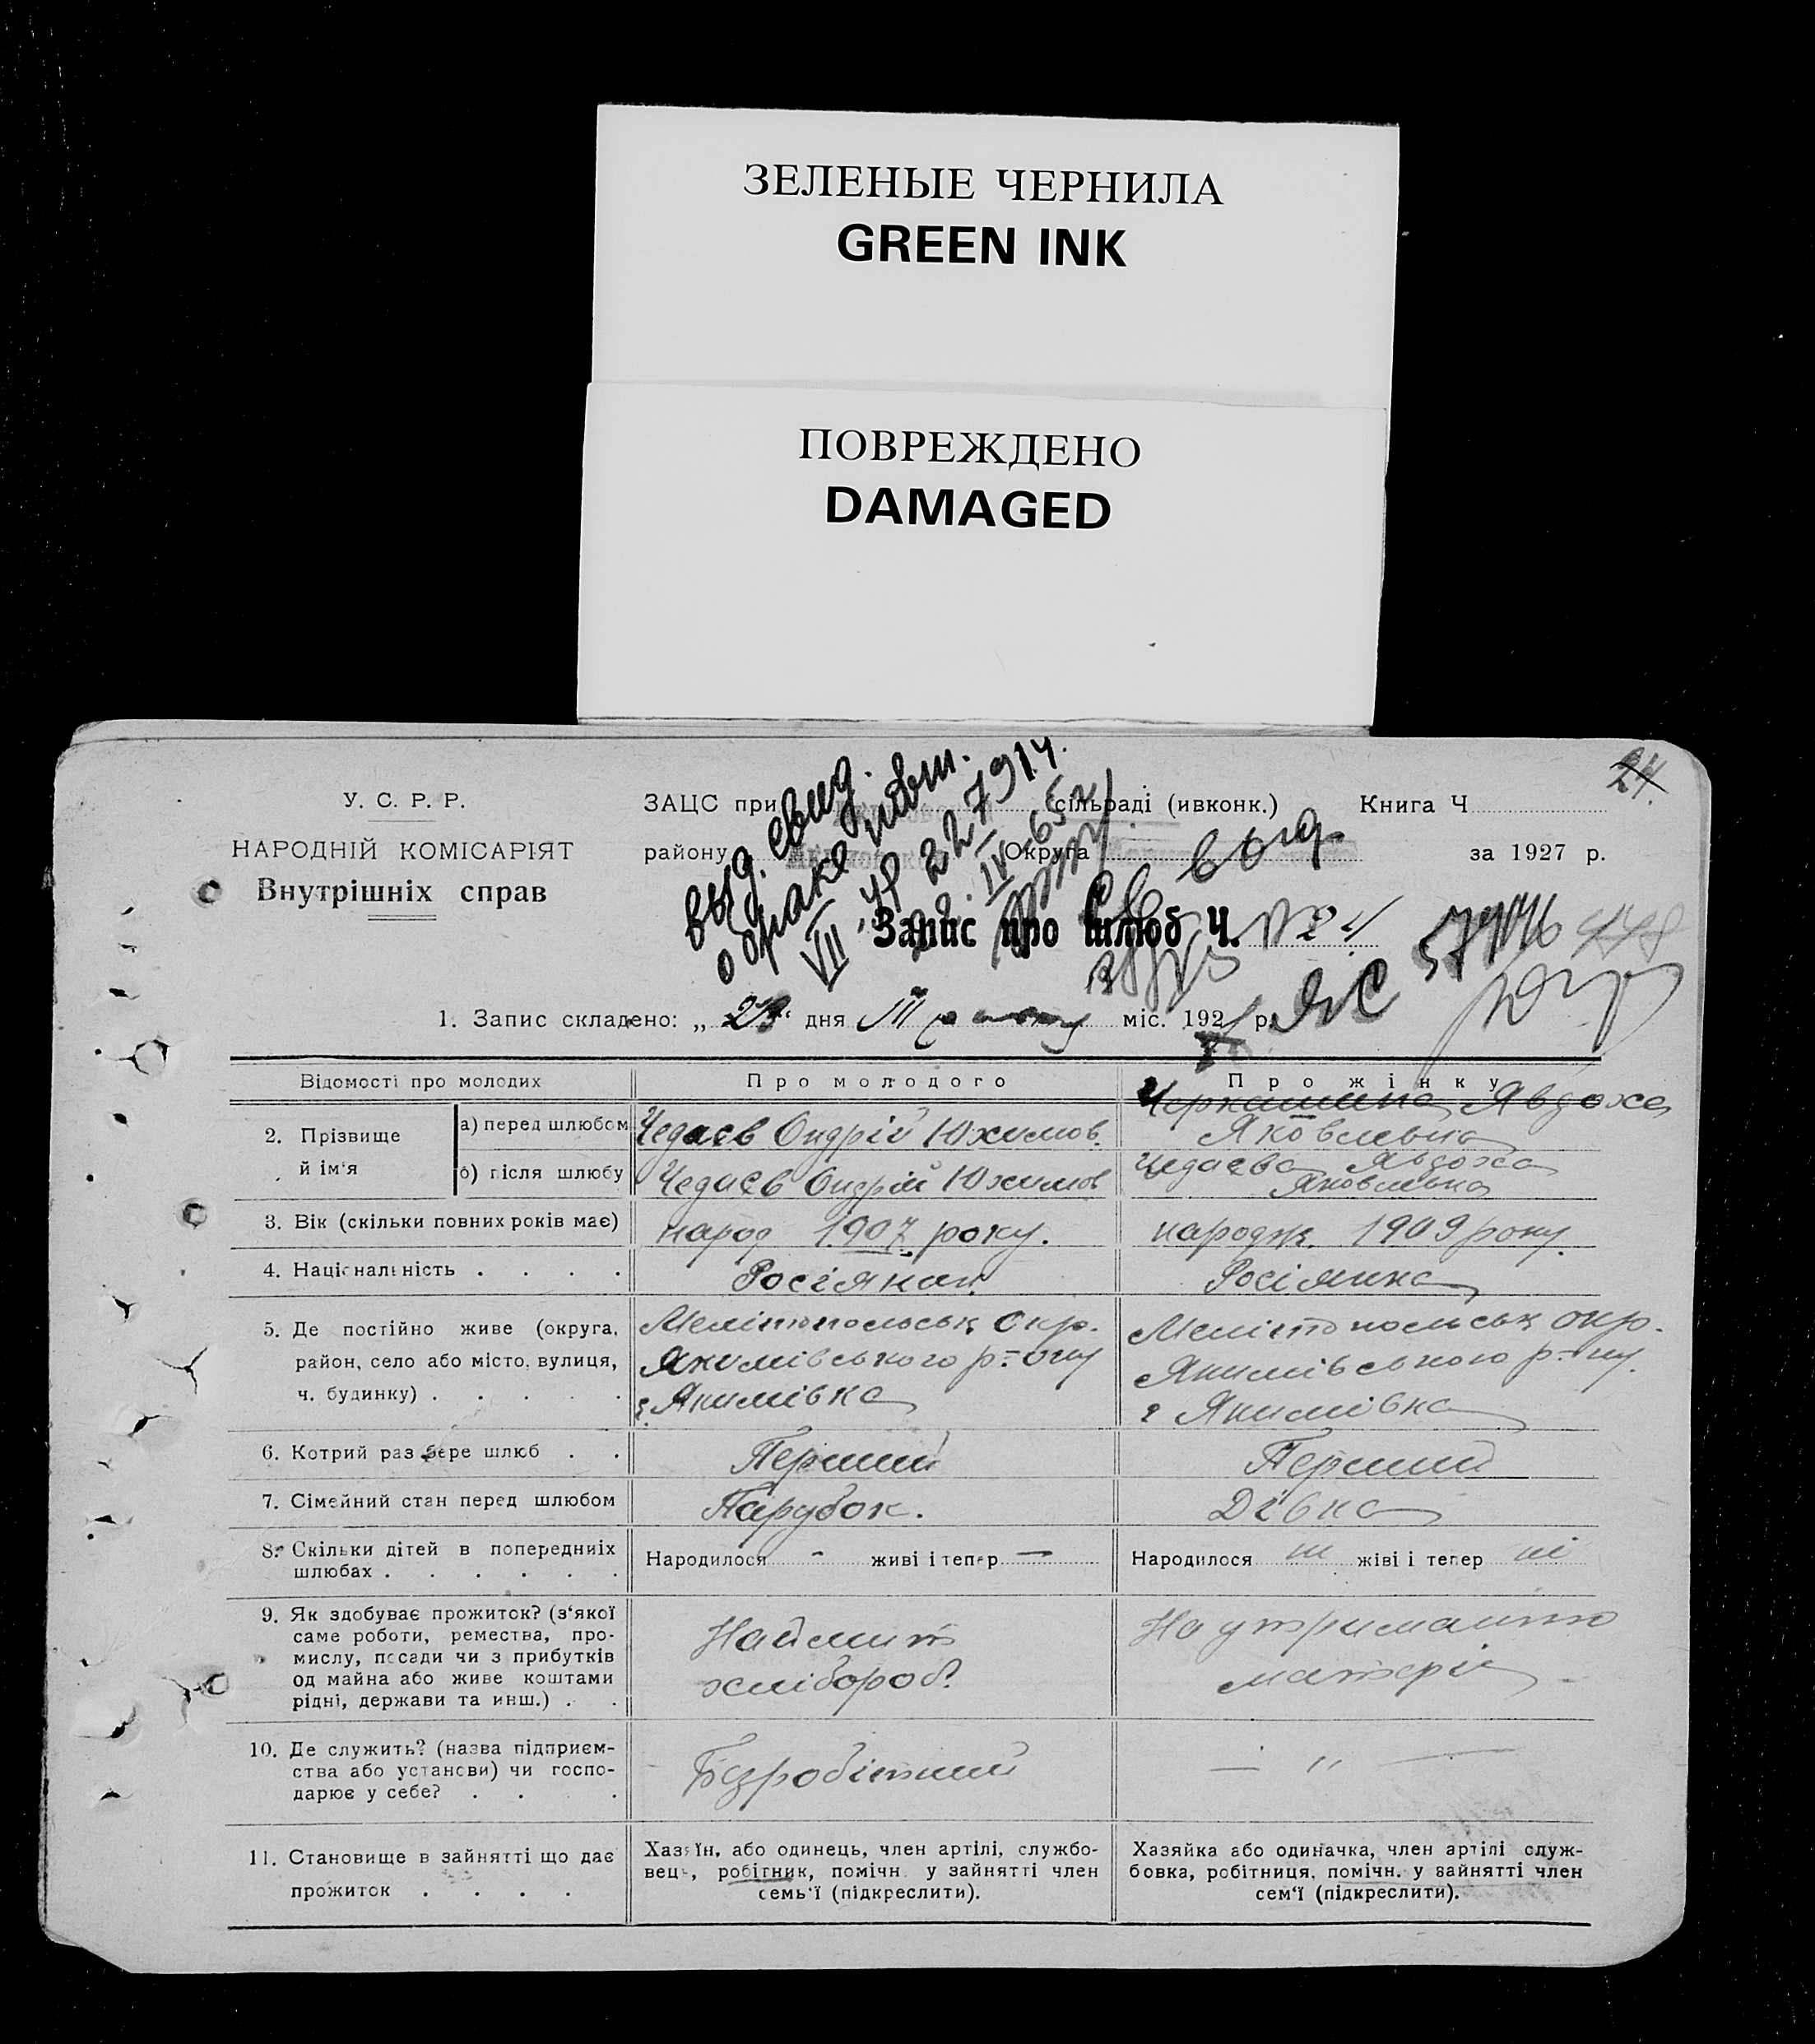 ЗЕЛЕНЫЕ ЧЕРНИЛА
GREEN INK
ПОВРЕЖДЕНО
DAMAGED
24
У. С. Р. Р.
НАРОДНІЙ КОМІСАРІЯТ
Внутрішніх справ
ЗАЦС при сільраді (ивконк.) Книга Ч
району Округа за 1927 р.
выд. свид.
о браке повт.
VII ур 227914
IV-65г
Запис про шлюб Ч.
1. Запис складено: „ 23 “ дня III міс. 192 р.
Відомості про молодих Про молодого Про жінку
2. Прізвище й ім‘я
а) перед шлюбом Чедаєв Ондрій Юхимов. Черкашина Явдоха Яковлевна
б) після шлюбу Чедаєв Ондрій Юхимов Чедаєва Явдоха Яковлевна
3. Вік (скільки повних років має) народ 1907 року. народж. 1909 року.
4. Національність . . . . Росіянин Росіянка
5. Де постійно живе (округа,
район, село або місто, вулиця,
ч. будинку) . . . . .
Мелітопольськ Окр.
Якимівського р-ону
с. Якимівка
Мелітопольськ окр.
Якимівського р-ну.
с Якимівка
6. Котрий раз бере шлюб . . Перший Перший
7. Сімейний стан перед шлюбом Парубок. Дівка
8. Скільки дітей в попередниіх
шлюбах . . . . . .
Народилося - живі і тепер — Народилося ні жіві і тепер ні
9. Як здобуває прожиток? (з‘якої
саме роботи, ремества, про-
мислу, посади чи з прибутків
од майна або живе коштами
рідні, держави та инш.) . .
Наймит
хлібороб.
На утриманню
матері
10. Де служить? (назва підприєм-
ства або установи) чи госпо-
дарює у себе? . . .
Безробітний
— ,, —
11. Становище в зайнятті що дає
прожиток . . . .
Хазяїн, або одинець, член артілі, службо-
вець, робітник, помічн. у зайнятті член
семь‘ї (підкреслити).
Хазяйка або одиначка, член артілі служ-
бовка, робітниця, помічн. у зайнятті член
сем‘ї (підкреслити).